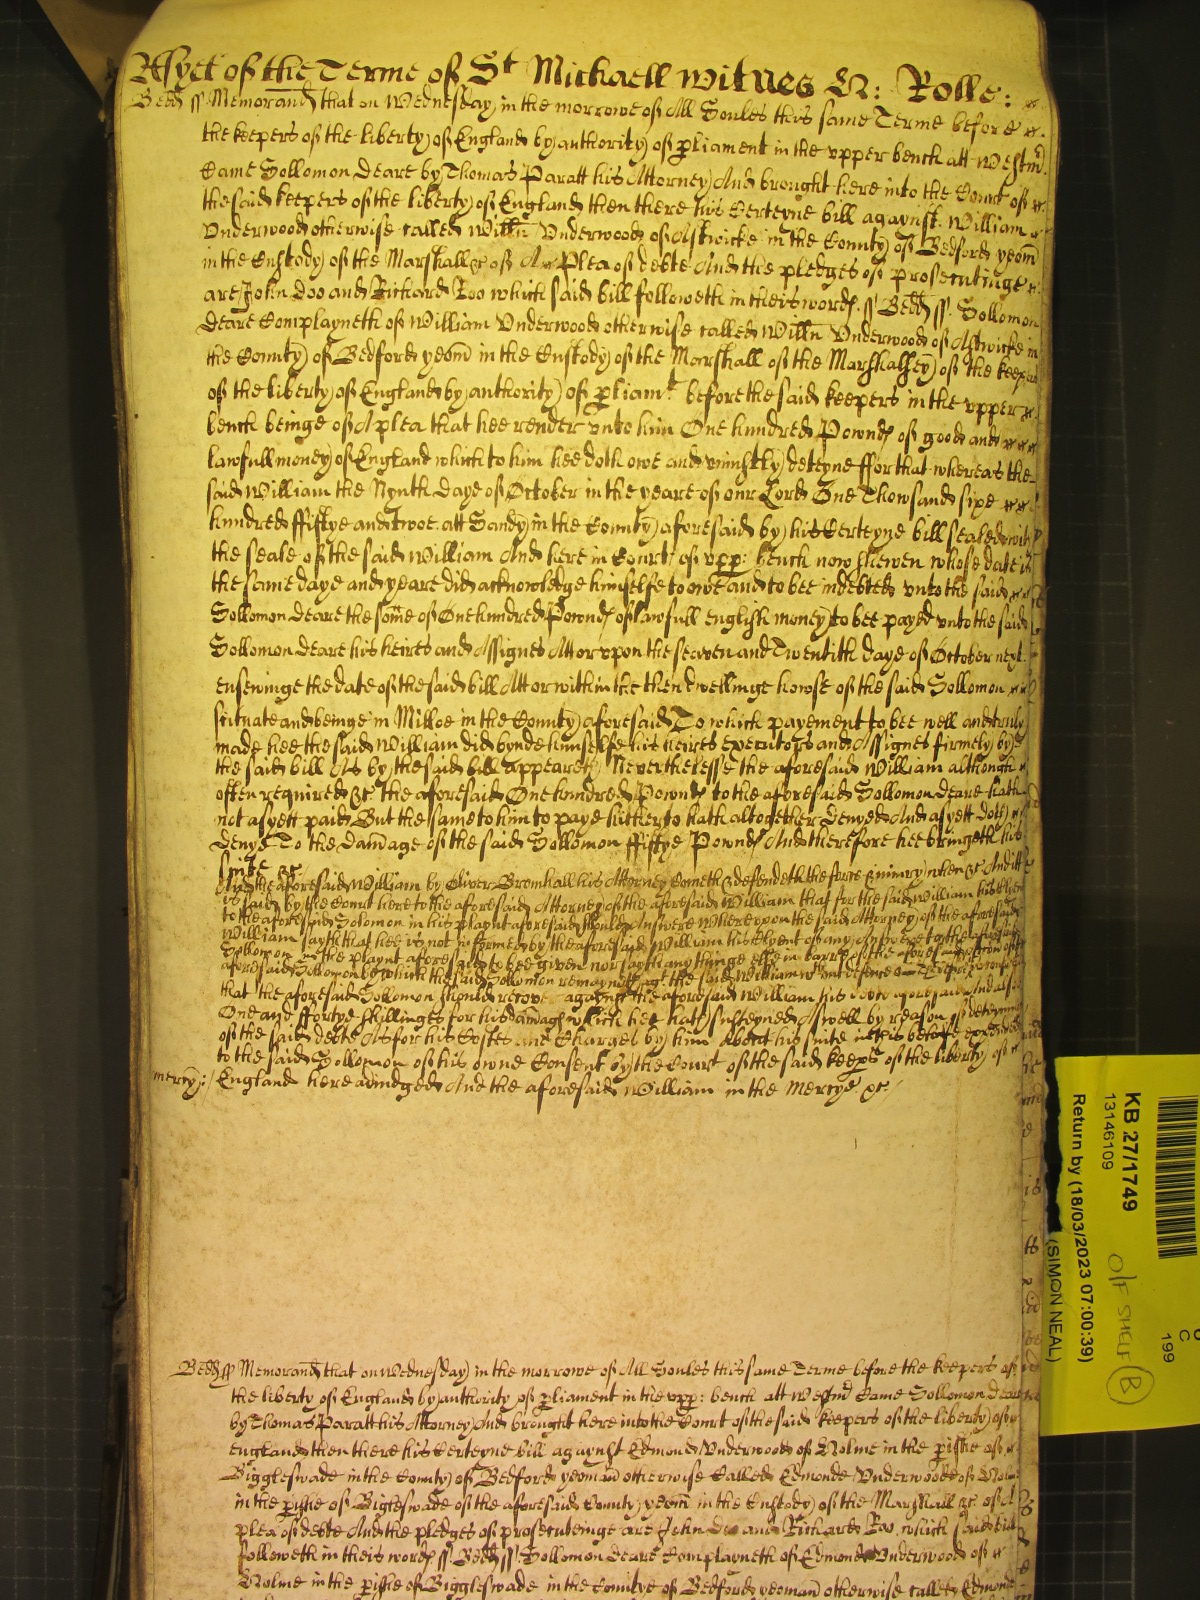 As yet of the Terme of St Michaell witnes H: Rolle:
Bedd ss Memorand that on Wednesday in the morrowe of All Soules this same Terme before
the keepers of the liberty of England by authority of pliament in the upper bench att Westm
Came Sollomon Deare by Thomas Paratt his Attorney And brought here into the Court of
the said keepers of the liberty of England then there his Certeyne bill agaynst William
Underwood otherwise called Willm Underwood of Astwicke in the County of Bedford yeom
in the Custody of the Marshall &c of A Plea of debte And the pledges of prosecutinge
are John Doo and Richard Roo which said bill followeth in theis words ss Bedd ss Sollomon
Deare Complayneth of William Underwood otherwise called Willm Underwood of Astwicke in
the County of Bedford yeom in the Custody of the Marshall of the Marshalsey of the keepers
of the liberty of England by authority of pliamt before the said keepers in the upper
bench beinge of A plea that hee render unto him One hundred Pownds of good and
lawfull money of England which to him hee doth owe and uniustly deteyne ffor that whereas the
said William the Nynth daye of October in the yeare of our Lord One Thowsand sixe
hundred ffiftye and twoe att Sandy in the County aforesaid by his Certeyne bill sealed with
the seale of the said William And here in Court of upp: bench now shewen whose date is
the same daye and yeare did acknowledge himselfe to owe and to bee indebted unto the said
Sollomon Deare the some of One hundred Pownds of lawfull english money to bee payed unto the said
Sollomon Deare his heires and Assignes Att or upon the seaven and Twentith daye of October next
ensewinge the date of the said bill Att or within the then dwellinge howse of the said Sollomon
scituate and beinge in Milloe in the County aforesaid To which payement to bee well and truly
made hee the said William did bynde himselfe his heires executors and Assignes firmely by
the said bill As by the said bill appeareth Neverthelesse the aforesaid William although
often required &c the aforesaid One hundred Pownds to the aforesaid Sollomon Deare hath
not as yett paid But the same to him to paye hitherto hath altogether denyed And as yett doth
denye To the damage of the said Sollomon ffiftye Pownds And therefore hee bringeth his
suite &c
And the aforesaid William by Oliver Bromhall his Attorney Cometh & defendeth the force & iniury when &c And itt
is said by the Court here to the aforesaid Attorney of the aforesaid William that for the said William his Clyent
to the aforesaid Sollomon in his playnt aforesaid hee should Answere Whereupon the said Attorney of the aforesaid
William sayth that hee is not informed by the aforesaid William his Clyent of any Answere to the aforesaid
Sollomon in the playnt aforesaid to bee given nor sayth any thinge else in barre of the
aforesaid Sollomon by which the said Sollomon remayneth agt the said William wthout defence Therefore
that the aforesaid Sollomon should recover agaynst the aforesaid William his debte aforesaid And alsoe
One and ffortye shillinges for his damages which hee hath susteyned Aswell by reason of deteyninge
of the said debte As for his Costes and Charges by him About his suite in this behalfe expended
to the said Sollomon of his owne Consent by the Court of the said keeps of the liberty of
mercy:/ England here adiudged And the aforesaid William in the Mercye &c/
Bedd ss Memorand that on Wednesday in the morrowe of All Soules this same Terme before the keepers of
the liberty of England by authority of pliament in the upp: bench att Westm Came Sollomon Deare
by Thomas Paratt his Attorney And brought here into the Court of the said keepers of the liberty of
England then there his Certeyne bill agaynst Edmond Underwood of Holme in the pishe of
Biggleswade in the County of Bedford yeoman otherwise Called Edmonde Underwoode of Holme
in the pishe of Bigleswade of the aforesaid County yeom in the Custody of the Marshall &c of A
plea of debte And the pledges of prosecuteinge are John Doo and Richard Roo which said bill
followeth in theis words ss Bedd ss Sollomon Deare Complayneth of Edmond Underwood of
Holme in the pishe of Biggleswade in the Countye of Bedford yeoman otherwise called Edmonde
KB 27/1749
13146109
Return by (18/03/2023 07:00:39)
(SIMON NEAL)
O/F SHELF B
C
199